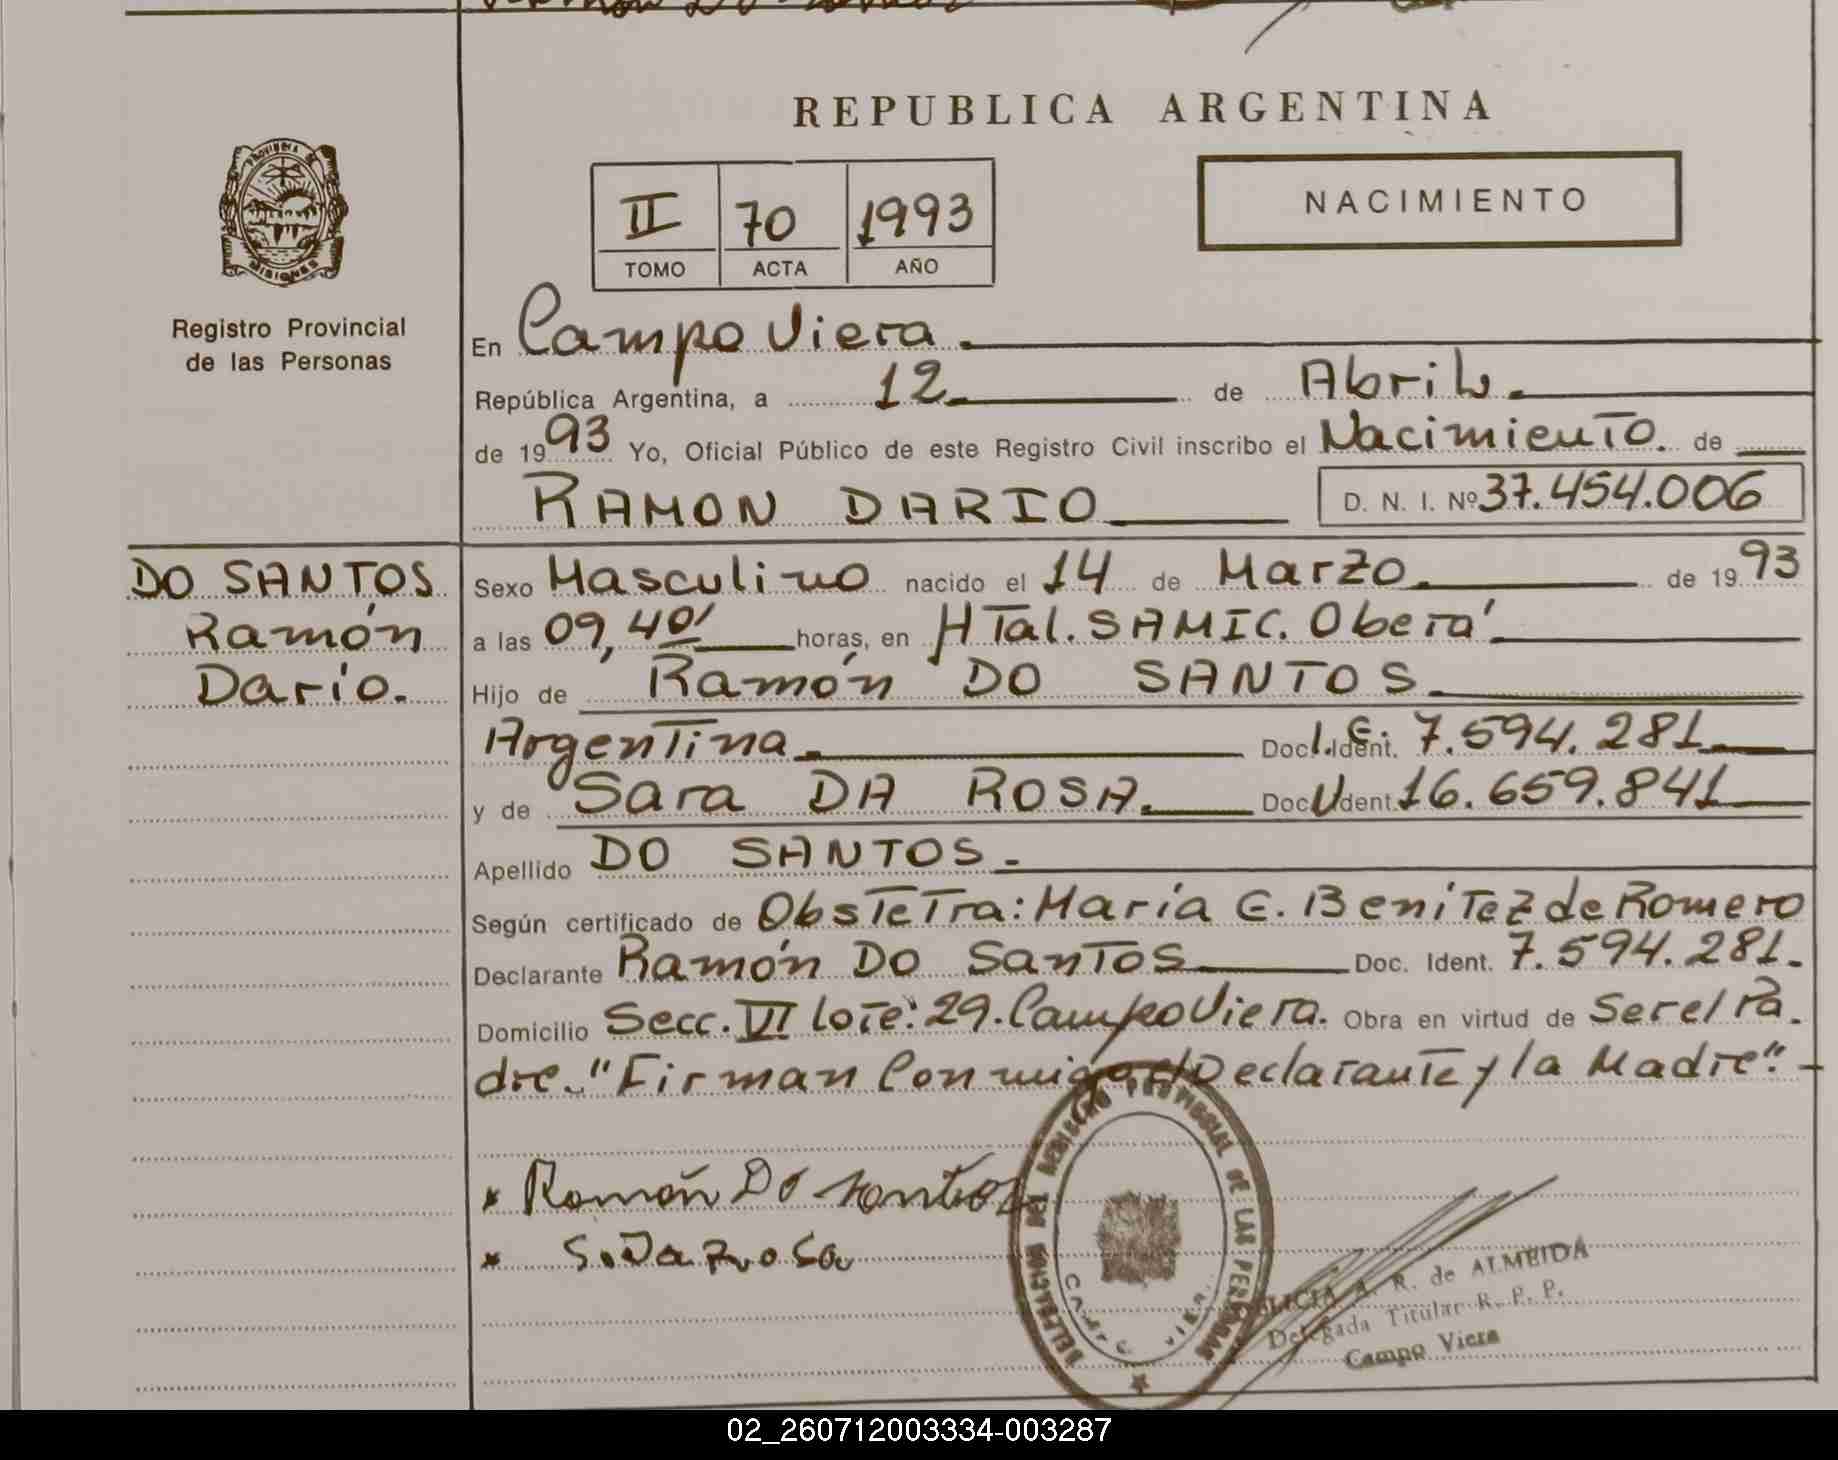 REPUBLICA ARGENTINA
PROVINCIA DE
MISIONES
Registro Provincial
de las Personas
II 70 1993
TOMO ACTA AÑO
NACIMIENTO
En Campo Viera.
República Argentina, a 12 de Abril.
de 1993 Yo, Oficial Público de este Registro Civil inscribo el Nacimiento. de
RAMON DARIO D. N. I. Nº 37.454.006
DO SANTOS
Ramón
Darío.
Sexo Masculino nacido el 14 de Marzo. de 1993
a las 09,40' horas, en HTal. SAMIC. Oberá
Hijo de Ramón DO SANTOS.
Argentina. Doc. Ident. L.E. 7.594.281
y de Sara DA ROSA. Doc. Ident. 16.659.841
Apellido DO SANTOS.
Según certificado de Obstetra: María E. Benitez de Romero
Declarante Ramón Do Santos Doc. Ident. 7.594.281.
Domicilio Secc. VI lote: 29. Campo Viera. Obra en virtud de Ser el Pa.
dre. "Firman Conmigo el Declarante y la Madre".
x Ramón Do Santos
x S. Da Rosa
DELEGACION DEL REGISTRO PROVINCIAL DE LAS PERSONAS
CAMPO VIERA
A. R. de ALMEIDA
Delegada Titular R. P. P.
Campo Viera
02_260712003334-003287